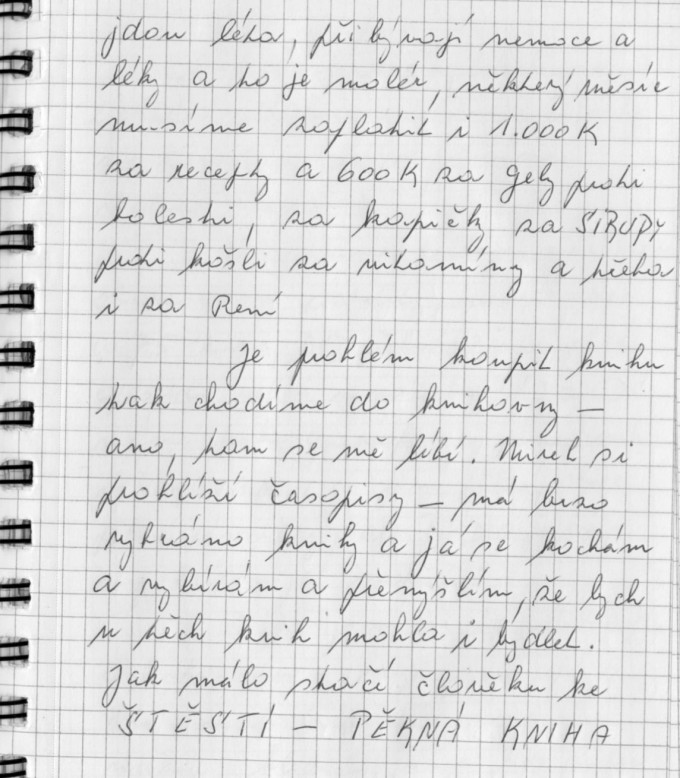 jdou léta, přibývají nemoce a
léky a to je malér, některý měsíc
musíme zaplatit i 1.000 K
za recepty a 600 K za gely proti
bolesti, za kapičky za SIRUPY
proti kašli za vitamíny a třeba
i za Rení
Je problém koupit knihu
tak chodíme do knihovny –
ano, tam se mě líbí. Mirek si
prohlíží časopisy – má brzo
vybráno knihy a já se kochám
a vybírám a přemýšlím, že bych
u těch knih mohla i bydlet.
Jak málo stačí člověku ke
ŠTĚSTÍ – PĚKNÁ KNIHA